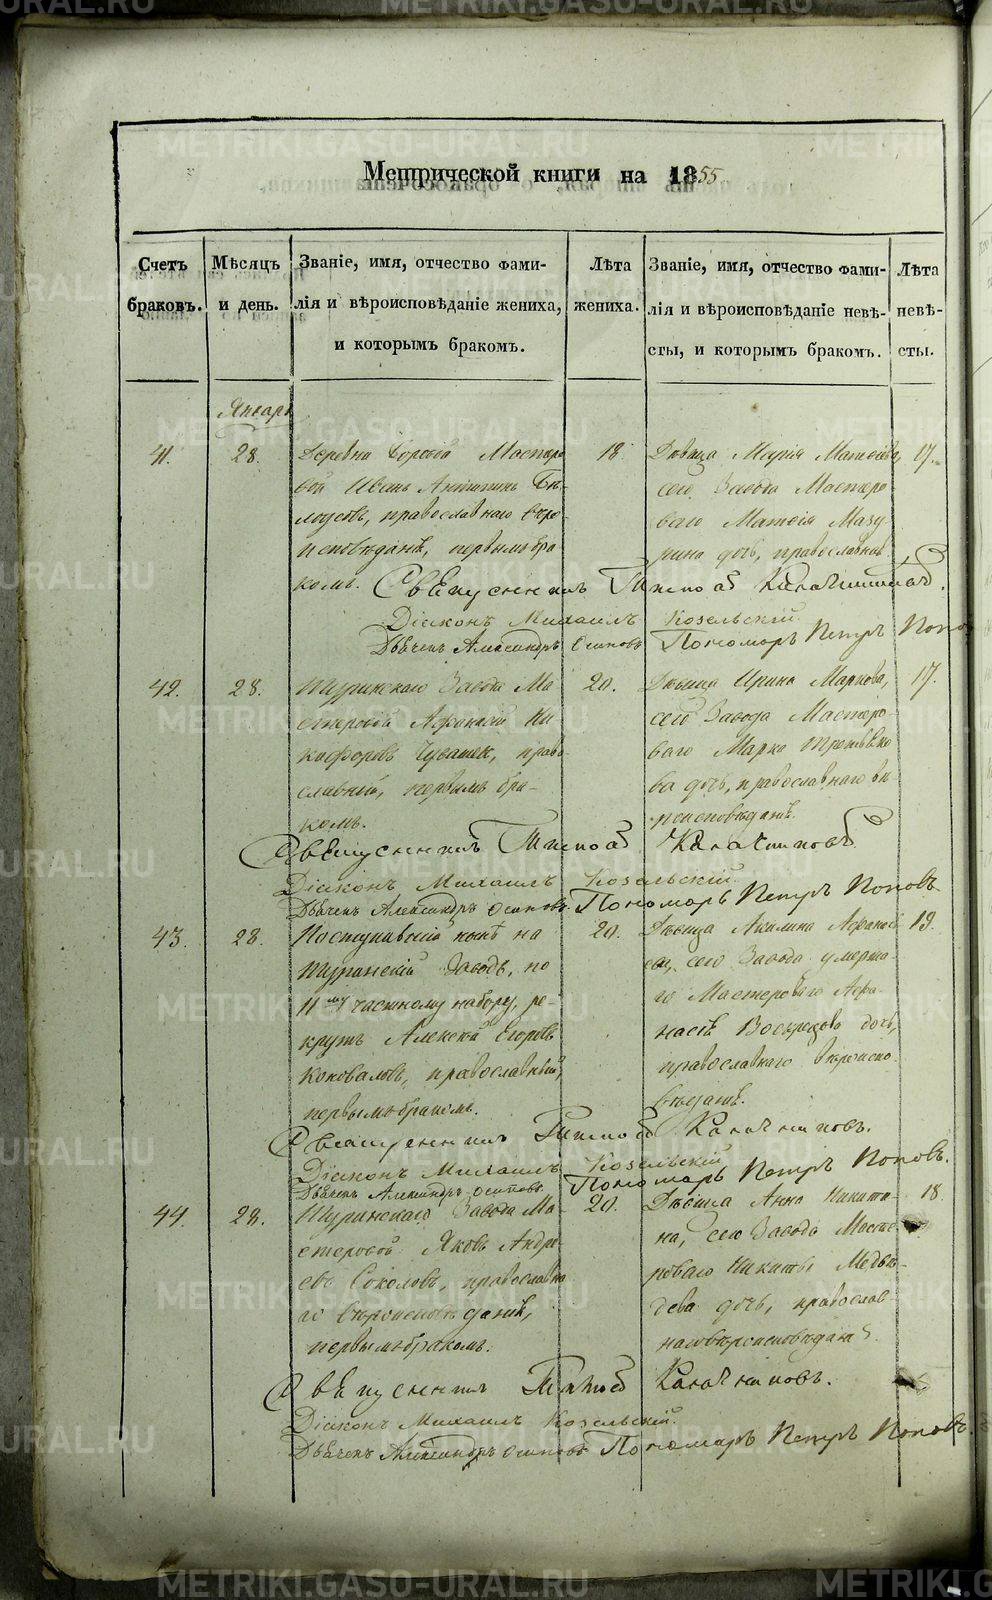 METRIKI.GASO-URAL.RU
Метрической книги на 1855
Счетъ браковъ.
Мѣсяцъ и день.
Званіе, имя, отчество фами-
лія и вѣроисповѣданіе жениха,
и которымъ бракомъ.
Лѣта жениха.
Званіе, имя, отчество фами-
лія и вѣроисповѣданіе невѣ-
сты, и которымъ бракомъ.
Лѣта невѣ-
сты.
Январь
41.
28.
Деревни Мастеро
вой Иванъ Антипинъ Бѣ-
лоусовъ, православнаго вѣро-
исповѣданія, первымъ бра
комъ.
18
Дѣвица Марія Матвѣева,
сего Завода Мастеро
ваго Матвія Мазу
рина дочь, православнаго
17.
Священникъ
Діаконъ Михаилъ Козельскій.
Дьячекъ Александръ Осиповъ Пономарь Петръ Поповъ
42.
28.
Туринскаго Завода Ма
стеровой Афанасій Ни
кифоровъ Чувашевъ, право
славный, первымъ бра-
комъ.
20.
Дѣвица Ирина Маркова,
сего Завода Мастеро-
ваго Марка Третьяко
ва дочь, православнаго вѣ-
роисповѣданія.
17.
Священникъ Калачниковъ
Діаконъ Михаилъ Козельскій.
Дьячекъ Александръ Осиповъ. Пономарь Петръ Поповъ
43.
28.
Поступившій на
Туринскій Заводъ, по
11му частному набору, ре-
крутъ Алексѣй Егоровъ
Коноваловъ, православный,
первымъ бракомъ.
20.
Дѣвица Акилина Афанась
ева, сего Завода умерша-
го Мастероваго Афа-
насія дочь,
православнаго вѣроиспо-
вѣданія.
19.
Священникъ Калачниковъ.
Діаконъ Михаилъ Козельскій
Дьячекъ Александръ Осиповъ. Пономарь Петръ Поповъ.
44.
28.
Туринскаго Завода Ма-
стеровой Яковъ Андре-
евъ Соколовъ, православна
го вѣроисповѣданія,
первымъ бракомъ.
20.
Дѣвица Анна Никити-
на, сего Завода Масте-
роваго Никиты Медвѣ-
дева дочь, православ-
наго вѣроисповѣданія.
18.
Священникъ Калачниковъ.
Діаконъ Михаилъ Козельскій.
Дьячекъ Александръ Осиповъ Пономарь Петръ Поповъ.
METRIKI.GASO-URAL.RU